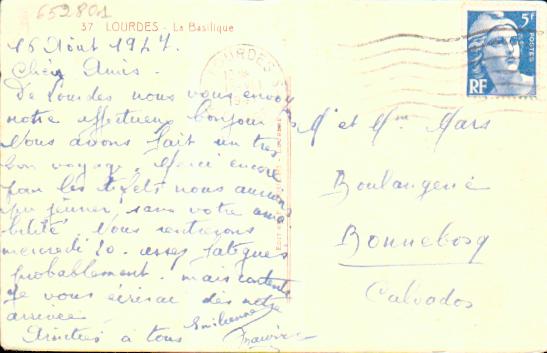 652801
37 LOURDES - La Basilique
16 Août 1947.
Chers Amis.
De Lourdes nous vous envoyons
notre affectueux bonjour
Nous avons fait un très
bon voyage, Merci encore
par les nous aurions
pu jeuner, sans votre ama
bilité. Nous rentrerons
mercredi 20. assez fatigués
probablement. mais contents
Je vous écrirai dès notre
arrivée.
Amitiés à tous Emilienne
Maurice
LOURDES
5F
POSTES
RF
Mr et Mme Mars
Boulangerie
Bonnebosq
Calvados